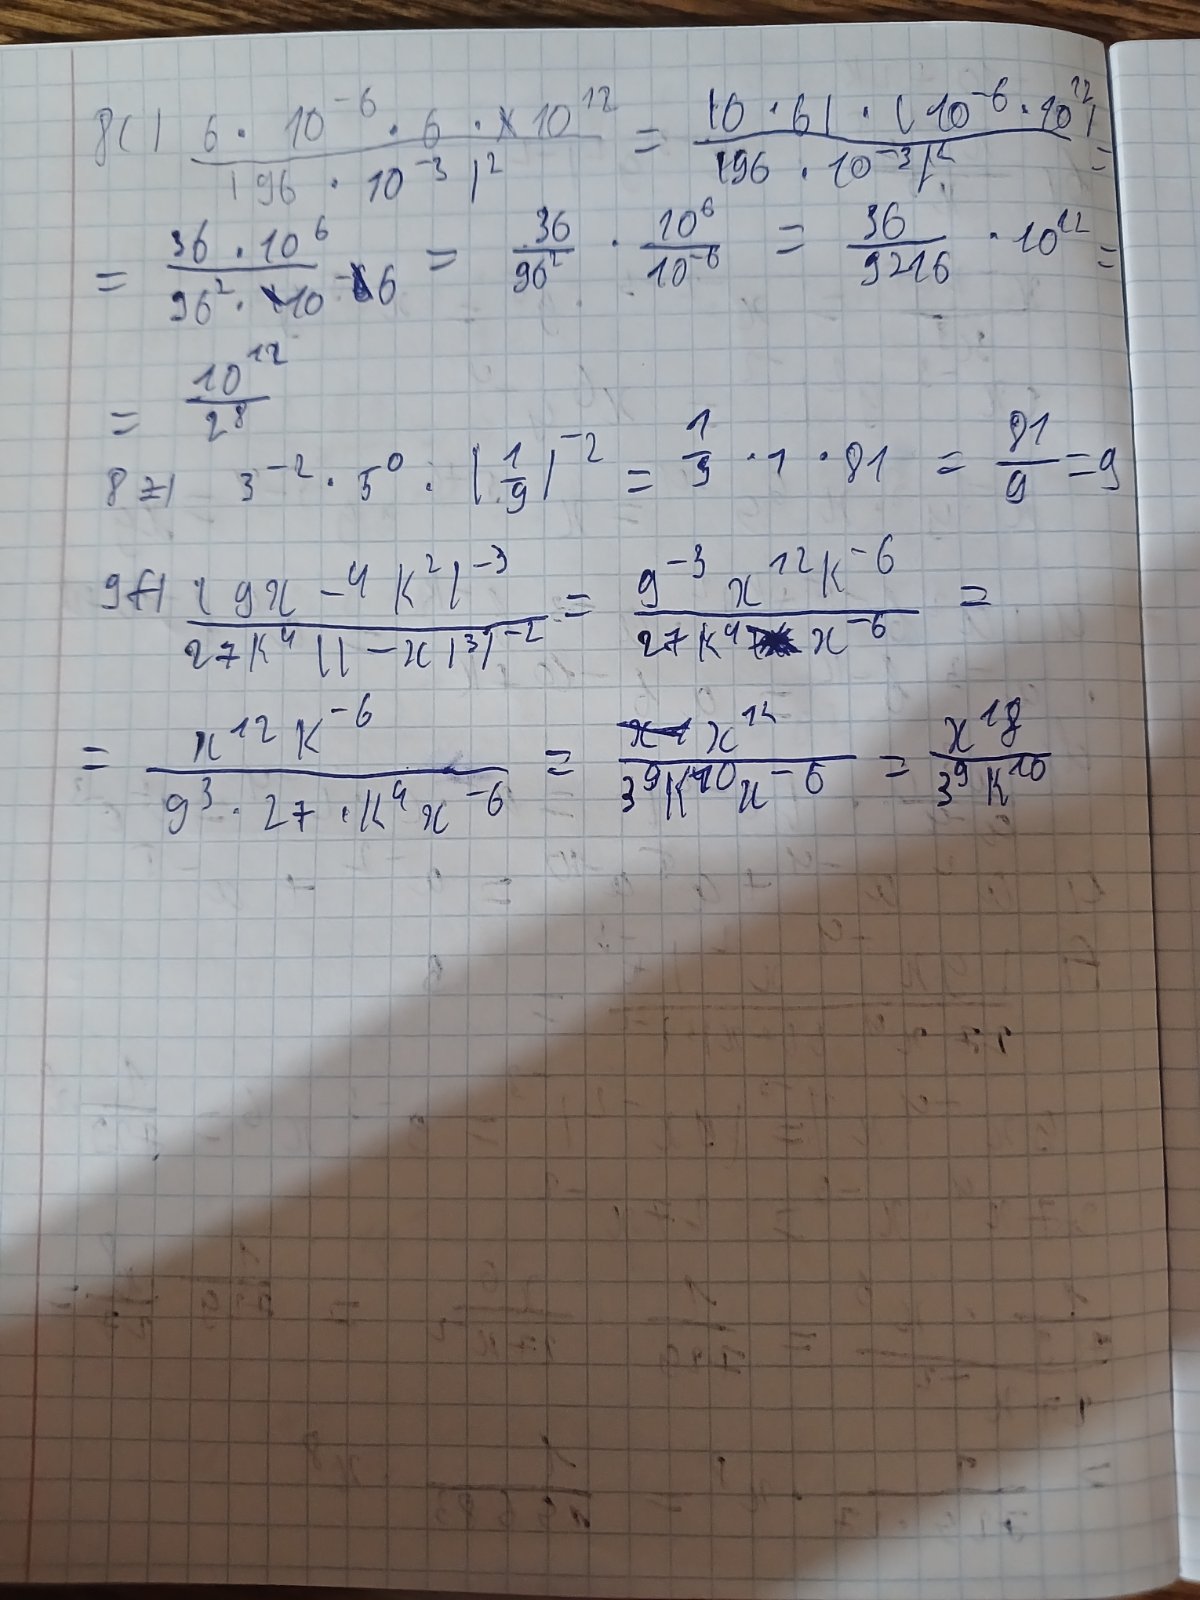 8c) 6 · 10^-6 · 6 · 10^12 / (96 · 10^-3)^2 = (0 · 6) · (10^-6 · 10^12) / (96 · 10^-3)^2 =
= 36 · 10^6 / 96^2 · 10^-6 = 36/96^2 · 10^6/10^-6 = 36/9216 · 10^12 =
= 10^12 / 2^8
8 z) 3^-2 · 5^0 · (1/9)^-2 = 1/9 · 1 · 81 = 81/9 = 9
9f) (9x^-4 k^2)^-3 / 27k^4 ((-x)^3)^-2 = 9^-3 x^12 k^-6 / 27k^4 x^-6 =
= x^12 k^-6 / 9^3 · 27 · k^4 x^-6 = x^12 / 3^9 k^10 x^-6 = x^18 / 3^9 k^10